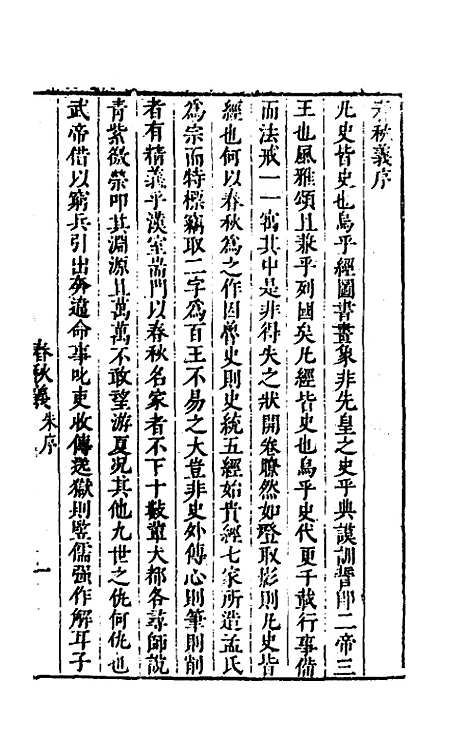 春秋義序
凡史皆史也烏乎經圖書畫象非先皇之史乎典謨訓誓郎二帝三
王也風雅頌且兼乎列國矣凡經皆史也烏乎史代更千載行事備
而法戒一一寓其中是非得失之狀開卷瞭然如燈取影則凡史皆
經也何以春秋爲之作因魯史則史統五經始貴經七家所造孟氏
爲宗而特標竊取二字爲百王不易之大豈非史外傳心則筆則削
者有精義乎漢室耑門以春秋名家者不下十數輩大都各尋師說
青紫徼榮叩其淵源且萬萬不敢望游夏況其他九世之仇何仇也
武帝借以窮兵引出疆遣命事叱吏收傳逮獄則墨儒強作解耳子
春秋義 朱序 一